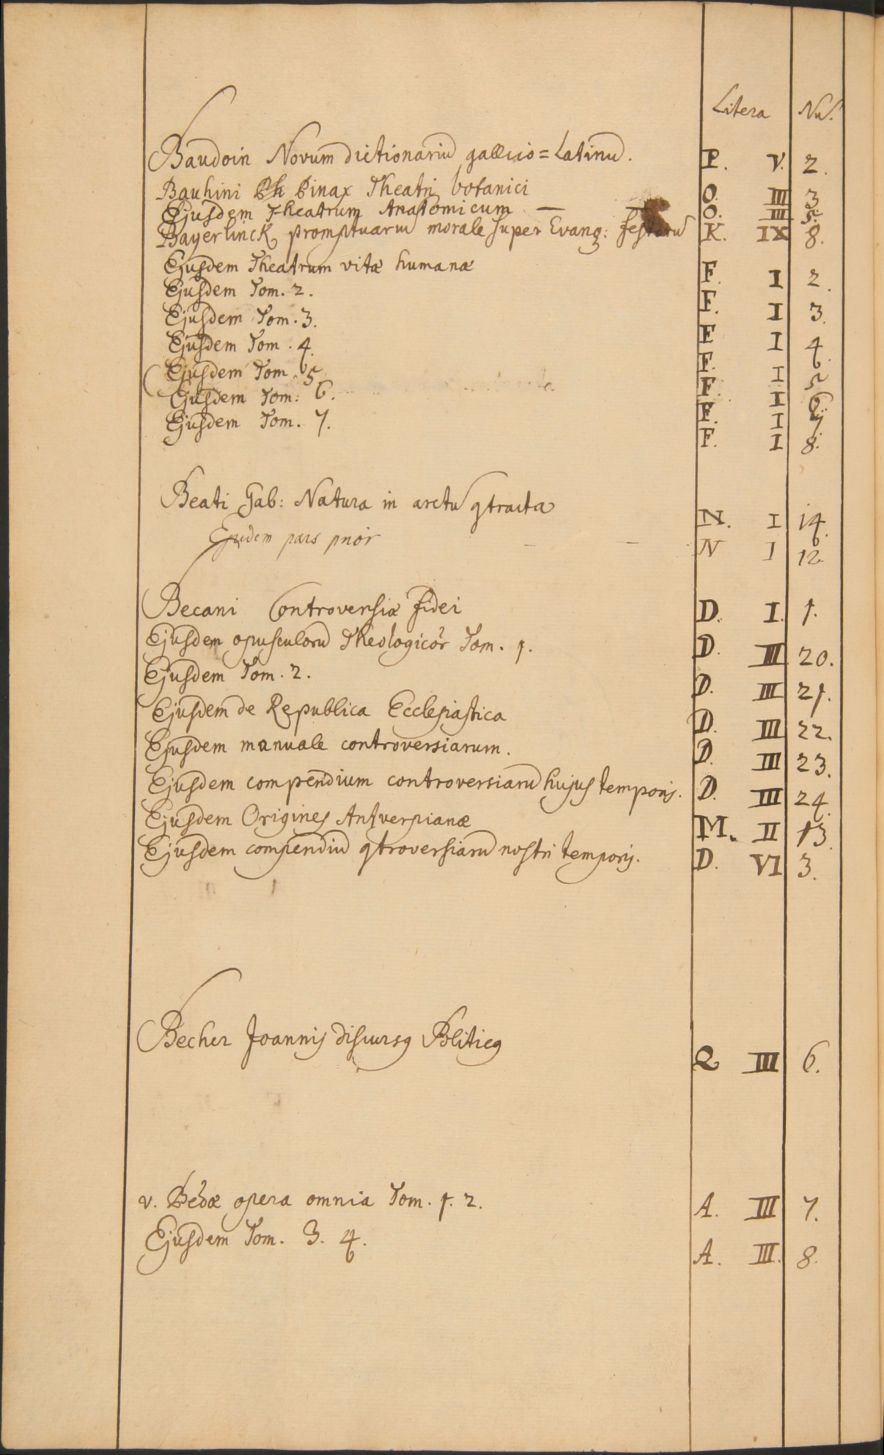 Litera Nu.
Baudoin Novum dictionariũ gallico=Latinũ. P. V. 2.
Bauhini Ph Pinax Theatri botanici O. III 3
Ejusdem Theatrum Anatomicum — — O. III 5.
Bayerlinck promptuariũ morale super Evang: K. IX 8.
Ejusdem Theatrum vitæ humanæ F. I 2.
Ejusdem Tom. 2. F. I 3
Ejusdem Tom. 3. F I 4.
Ejusdem Tom. 4. F. I 5
Ejusdem Tom. 5 F. I 6.
Ejusdem Tom: 6. F. I 7
Ejusdem Tom. 7. F. I 8.
Beati Gab: Natura in arctũ gtracta N. I 14.
Ejusdem pars prior — — N I 12
Becani Controversiæ fidei D. I. 1.
Ejusdem opusculorũ Theologicor̃ Tom. 1. D. III 20.
Ejusdem Tom. 2. D. III 21.
Ejusdem de Republica Ecclesiastica D. III 22.
Ejusdem manuale controversiarum. D. III 23.
Ejusdem compendium controversiarũ hujus temporis. D. III 24
Ejusdem Origines Antverpianæ M. II 13.
Ejusdem compendiũ gtroversiarũ nostri temporis. D. VI 3.
Becher Joannis discursg Politicg Q III 6.
v. Bedæ opera omnia Tom. 1. 2. A. III 7.
Ejusdem Tom. 3. 4. A. III. 8.